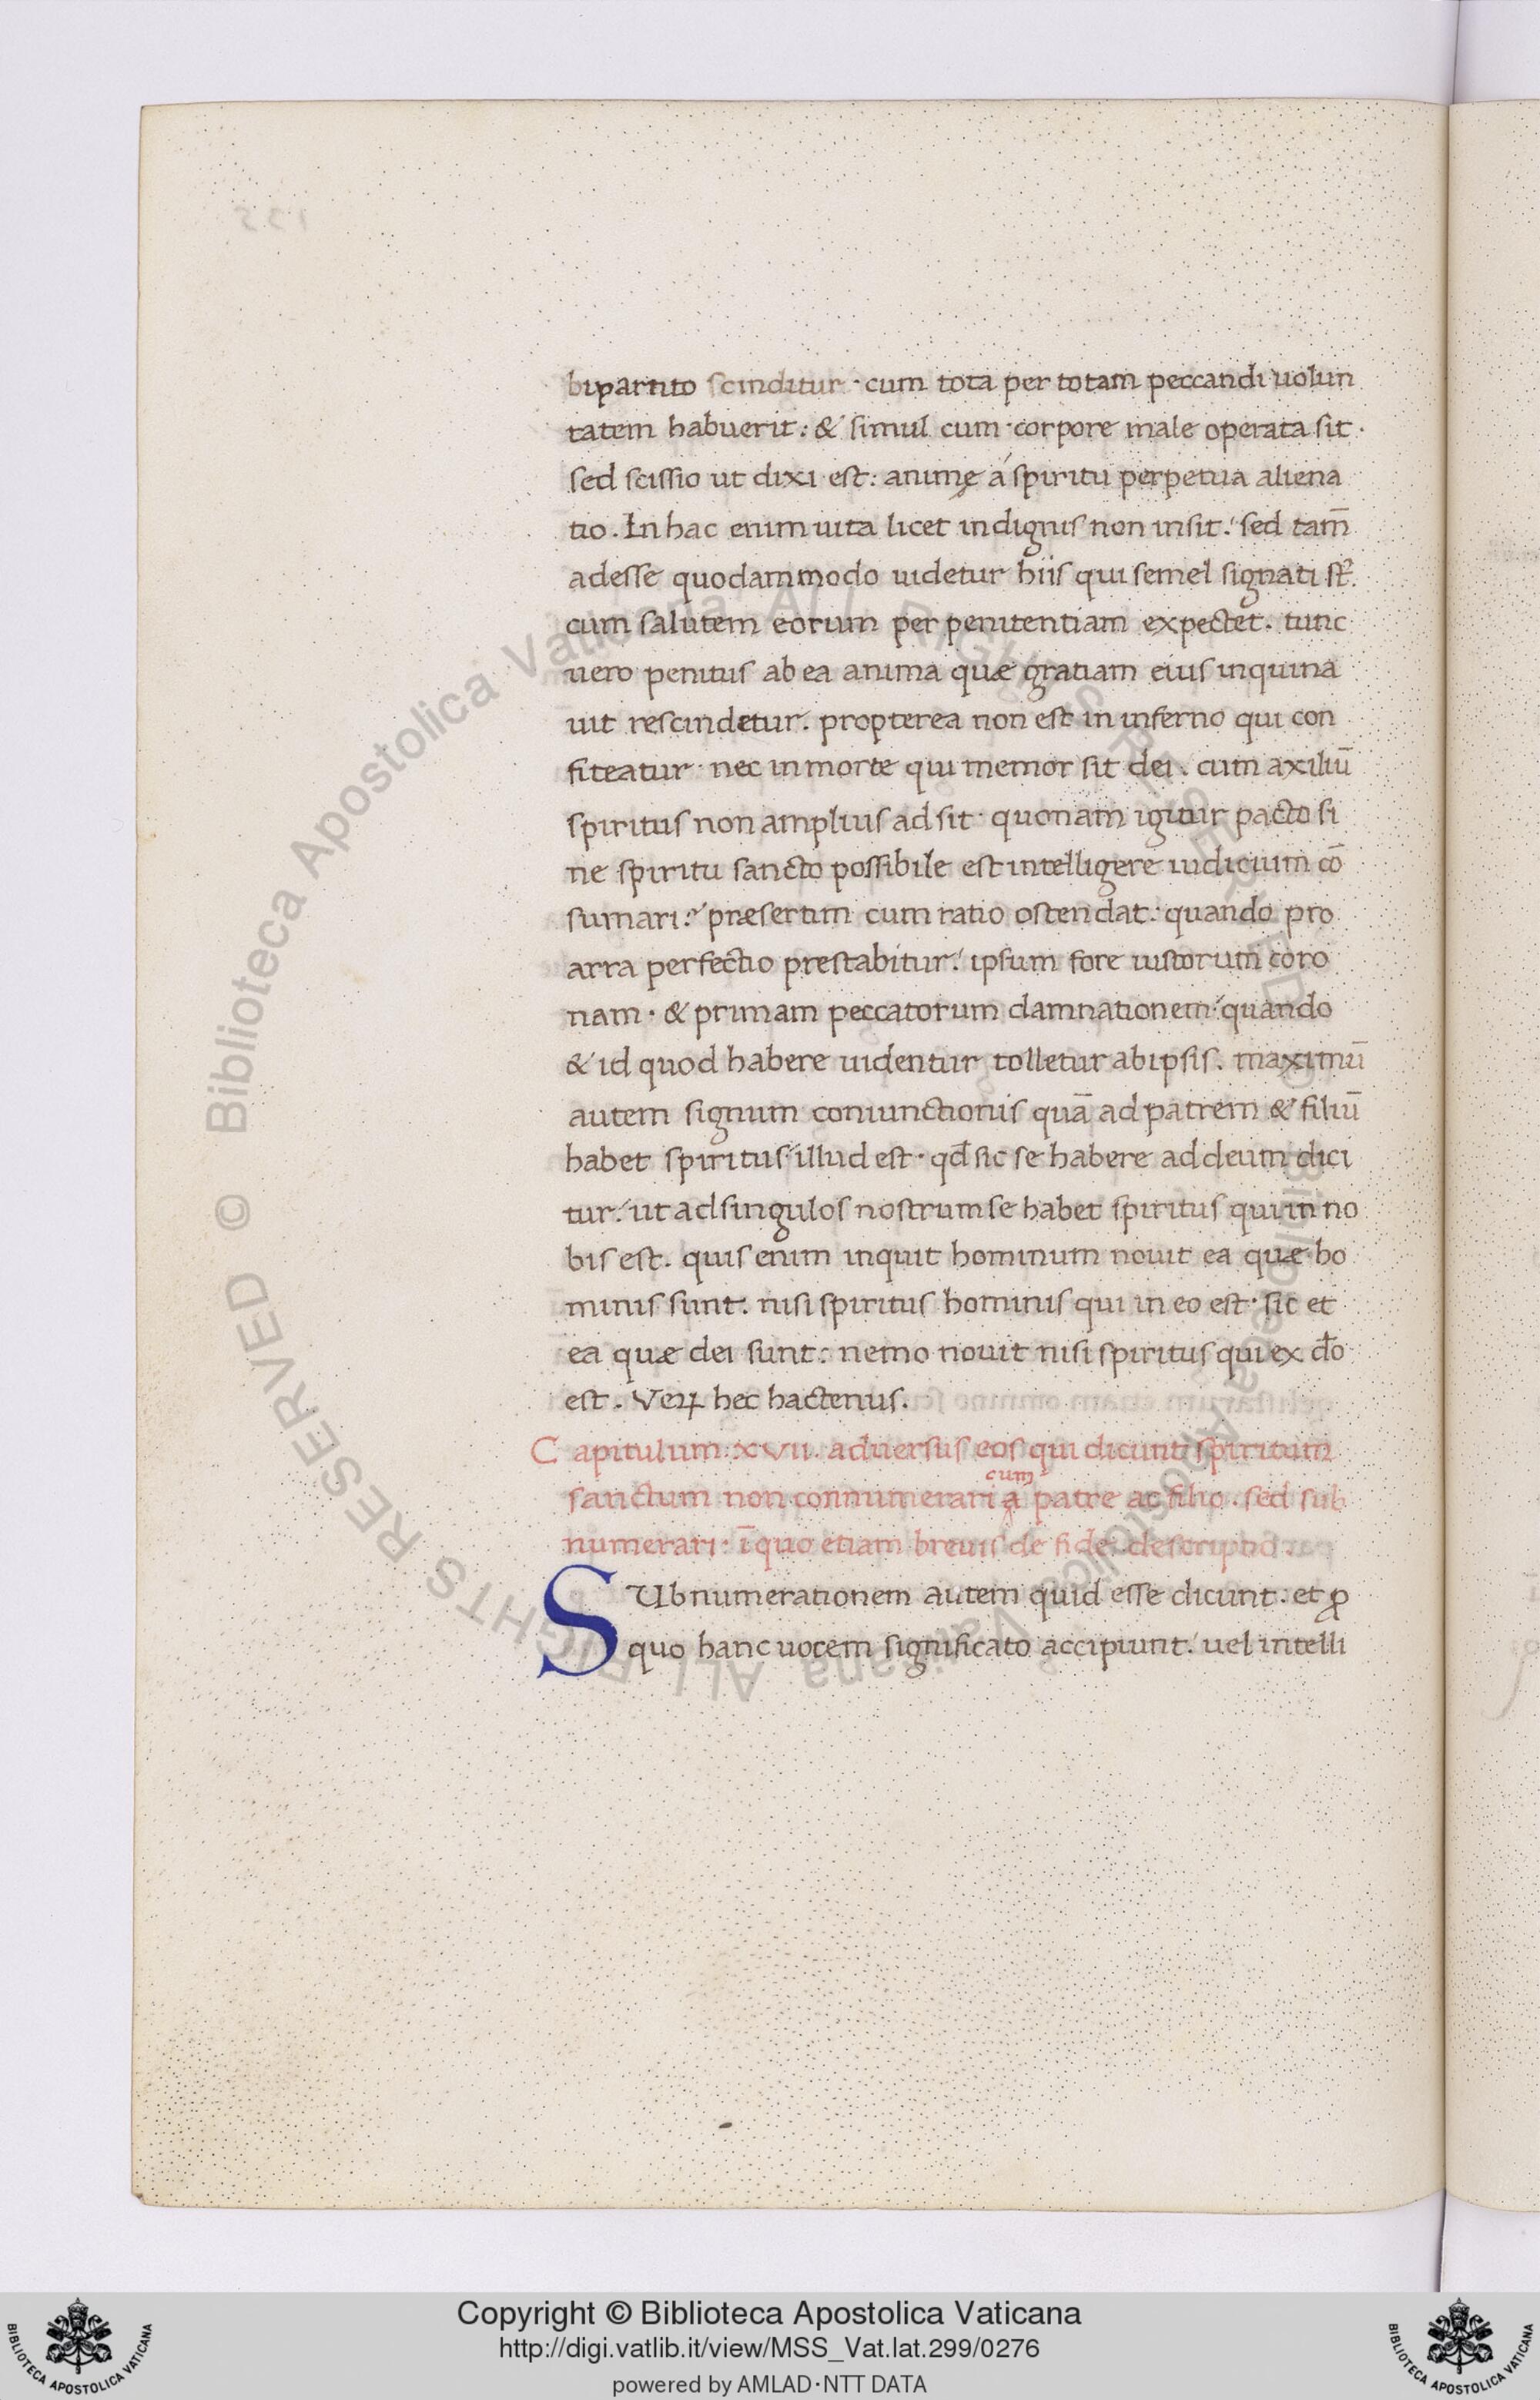 bipartito scinditur · cum tota per totam peccandi uolun
tatem habuerit : & simul cum corpore male operata sit ·
sed scissio ut dixi est : animę á spiritu perpetua aliena
tio . In hac enim uita licet indignis non insit : sed tam̄
adesse quodammodo uidetur hiis qui semel signati st̄ .
cum salutem eorum per penitentiam expectet . tunc
uero penitus ab ea anima quæ gratiam eius inquina
uit rescindetur . propterea non est in inferno qui con
fiteatur · nec in morte qui memor sit dei . cum axiliū
spiritus non amplius adsit · quonam igitur pacto si
ne spiritu sancto possibile est intelligere iudicium cō
sumari ? præsertim cum ratio ostendat : quando pro
arra perfectio prestabitur : ipsum fore iustorum coro
nam · & primam peccatorum damnationem : quando
& id quod habere uidentur tolletur ab ipsis . maximū
autem signum coniunctionis quā ad patrem & filiū
habet spiritus illud est · qđ sic se habere ad deum dici
tur : ut ad singulos nostrum se habet spiritus qui in no
bis est . quis enim inquit hominum nouit ea quæ ho
minis sunt . nisi spiritus hominis qui in eo est · sic et
ea quæ dei sunt : nemo nouit nisi spiritus qui ex do
est . Veꝝ hec hactenus .
Capitulum : xvii . aduersus eos qui dicunt spiritum
cum
sanctum non connumerari a patre ac filio . sed sub
numerari · ī quo etiam breuis de fide descriptio .
SUbnumerationem autem quid esse dicunt : et ꝓ
quo hanc uocem significato accipiunt : uel intelli
© Biblioteca Apostolica Vaticana ALL RIGHTS RESERVED © Biblioteca Apostolica Vaticana ALL RIGHTS RESERVED
Copyright © Biblioteca Apostolica Vaticana
http://digi.vatlib.it/view/MSS_Vat.lat.299/0276
powered by AMLAD·NTT DATA
BIBLIOTECA APOSTOLICA VATICANA
BIBLIOTECA APOSTOLICA VATICANA